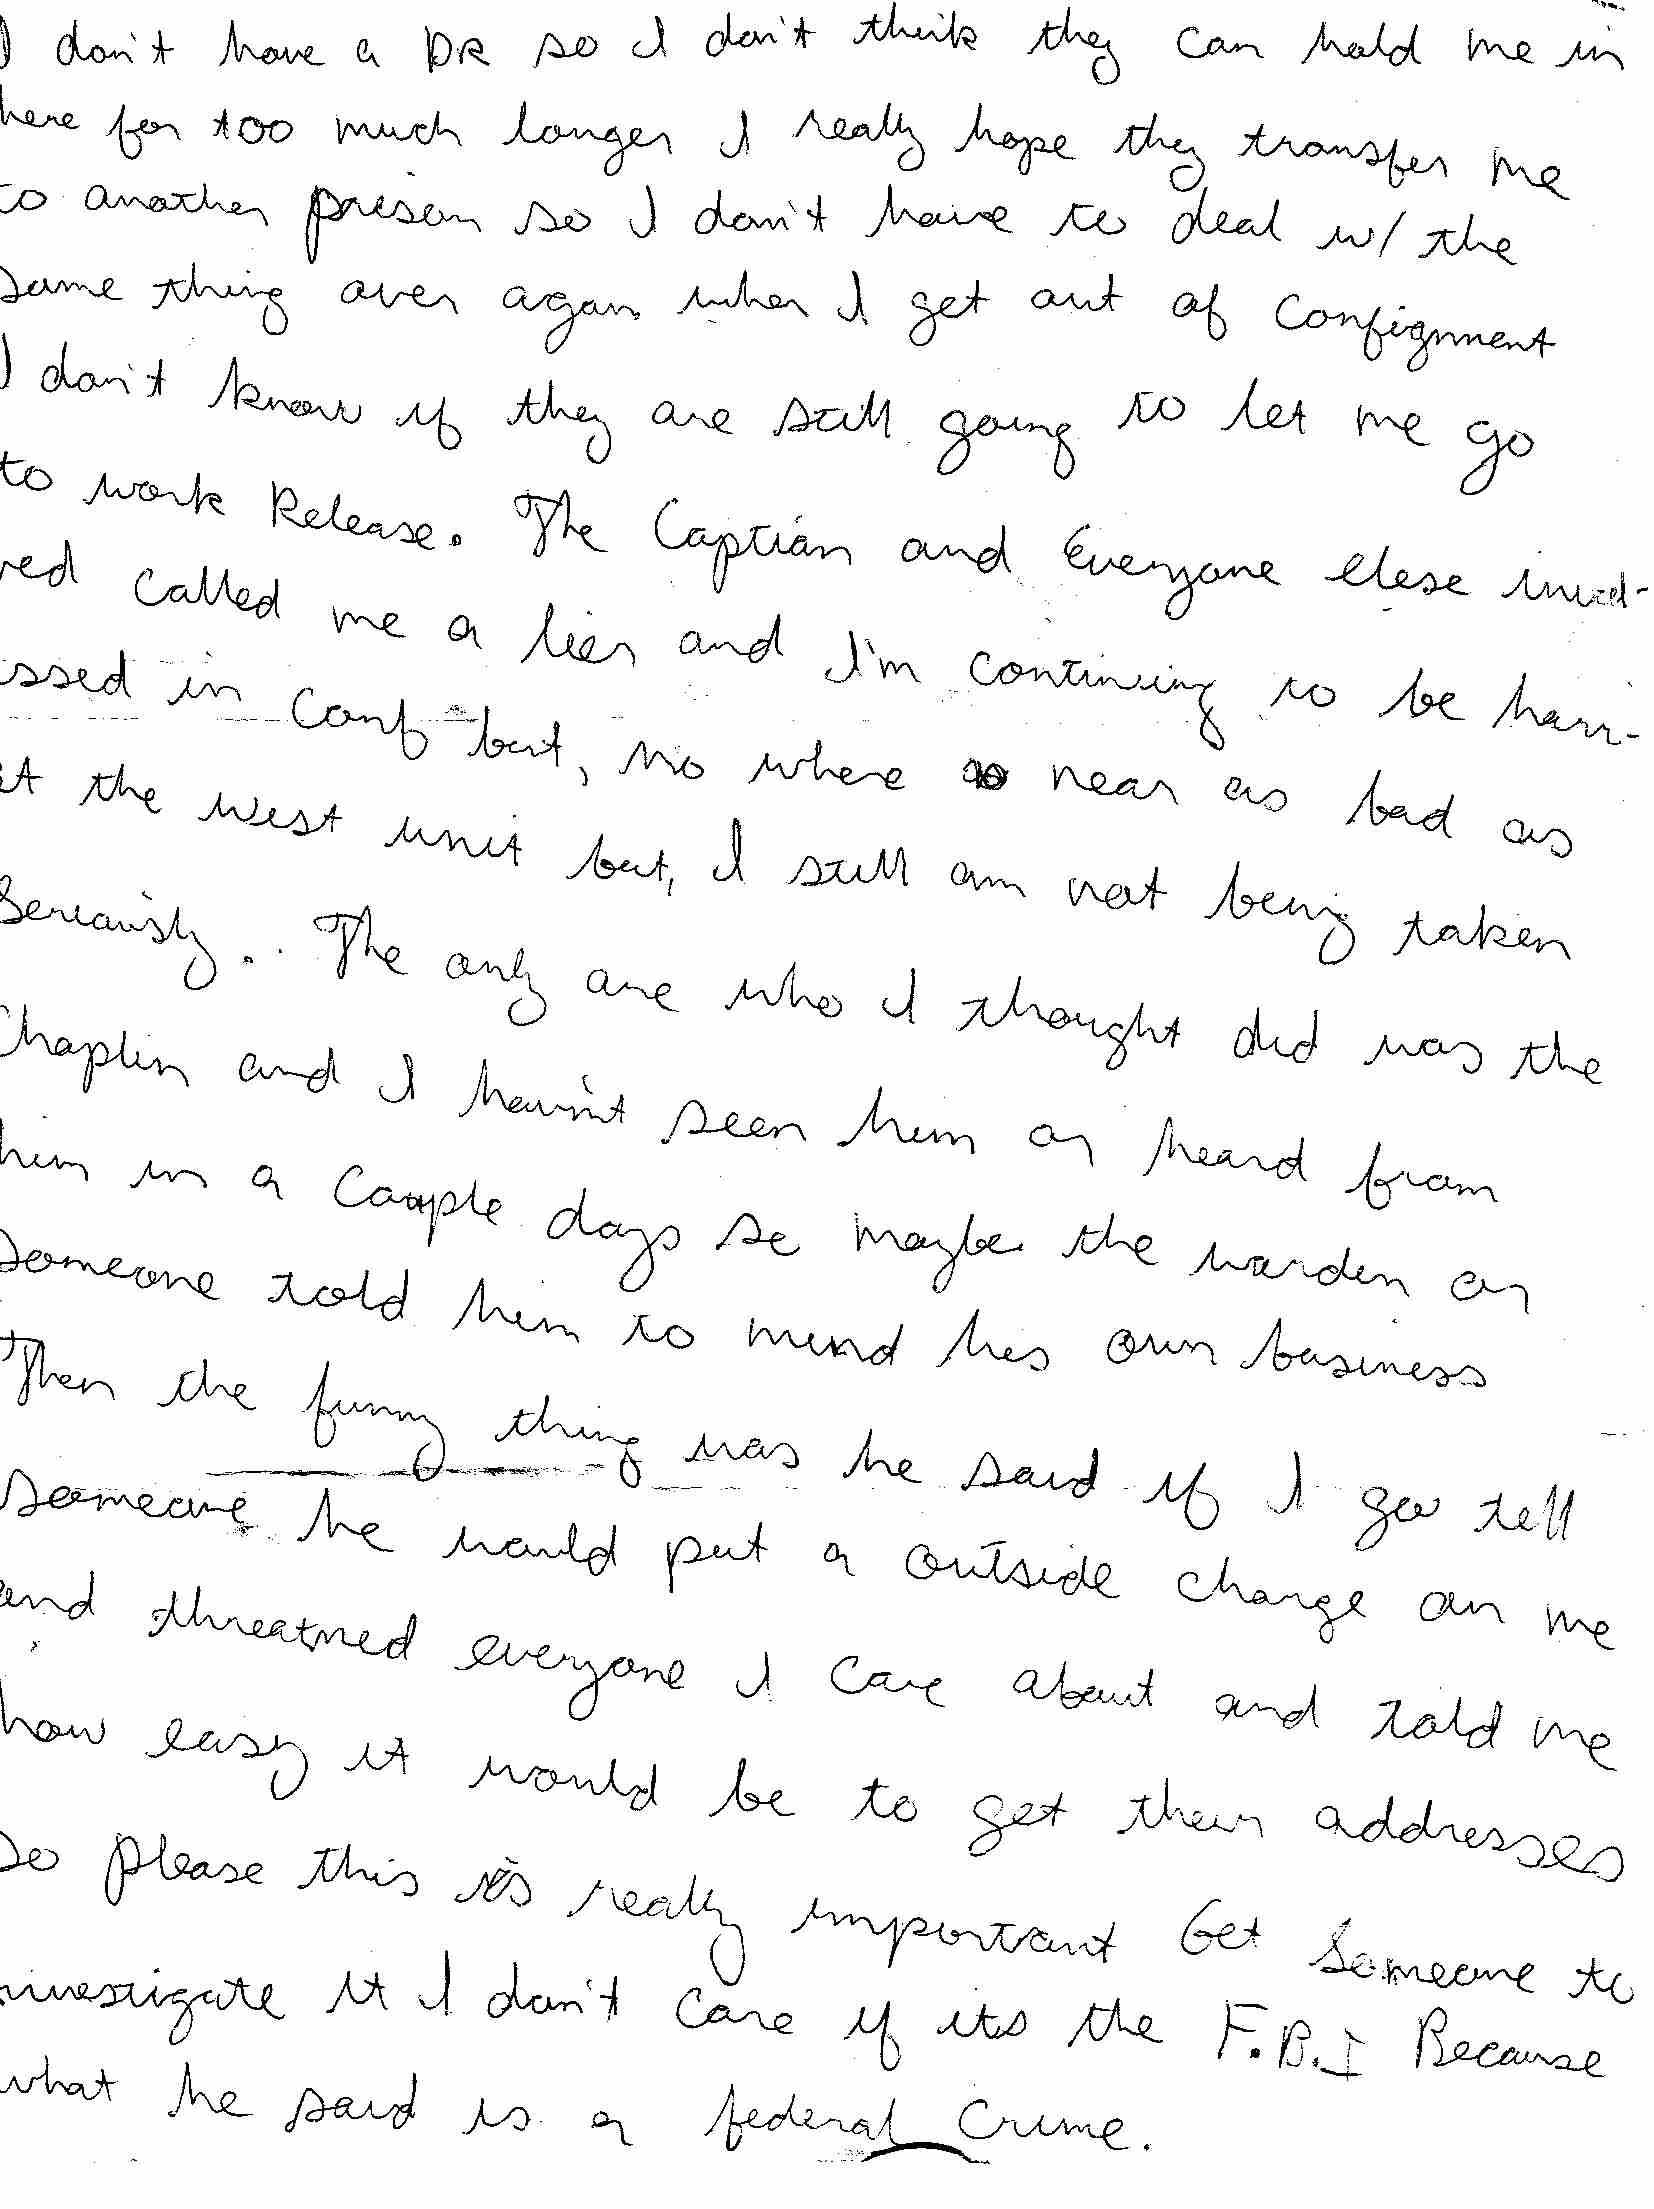 I don't have a DR so I don't think they can hold me in
here for too much longer I really hope they transfer me
to another prison so I don't have to deal w/ the
same thing over again when I get out of Confignment
I don't know if they are still going to let me go
to work Release. The Captian and Everyone elese invol-
ved called me a lier and I'm continuing to be harr-
issed in Conf but, no where near as bad as
at the west unit but, I still am not being taken
Seriously.. The only one who I thought did was the
Chaplin and I havin't seen him or heard from
him in a Couple days so maybe the warden or
someone told him to mind his own business
Then the funny thing was he said if I go tell
someone he would put a outside charge on me
and threatned everyone I care about and told me
how easy it would be to get their addresses
so please this is really important Get Someone to
investigate it I don't care if its the F.B.I Because
what he said is a federal Crime.